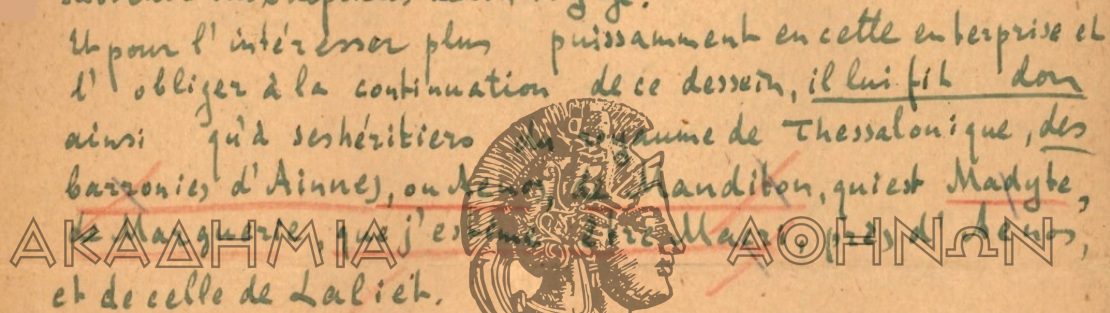 Et pour l'intéresser plus puissamment en cette enterprise et
l'obliger à la continuation de ce dessein, il lui fit don
ainsi qu'à ses héritiers du royaume de Thessalonique, des
barronies d'Ainnes, ou Aenos, de Manditon, qui est Madyte,
de Marguerie, que j'estime être Macri, près d'Aenos,
ΑΚΑΔΗΜΙΑ ΑΘΗΝΩΝ
et de celle de Laliet.